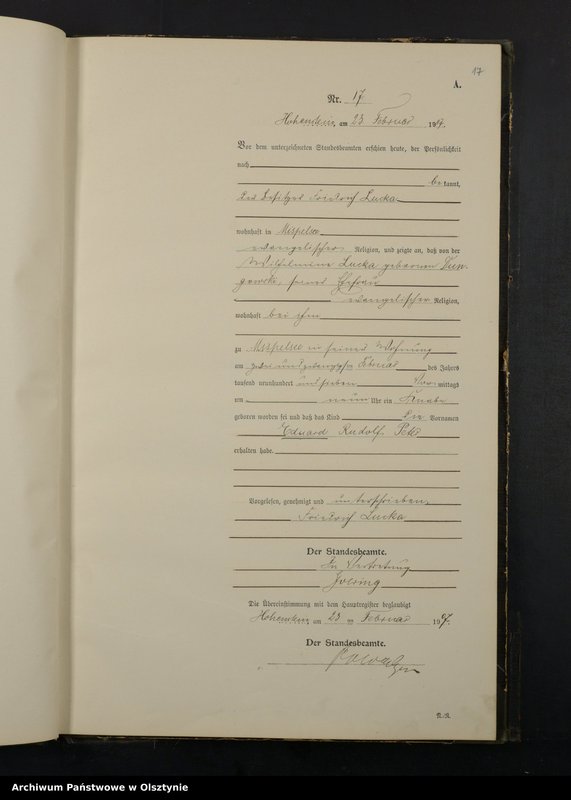 17
A.
Nr. 17
Hohenstein, am 23 Februar 1907.
Vor dem unterzeichneten Standesbeamten erschien heute, der Persönlichkeit
nach
bekannt,
der Besitzer Friedrich Lucka
wohnhaft in Mispelsee
evangelischer Religion, und zeigte an, daß von der
Wilhelmine Lucka geborenen
seiner Ehefrau
evangelischer Religion,
wohnhaft bei ihm
zu Mispelsee in seiner Wohnung
am zwei und zwanzigsten Februar des Jahres
tausend neunhundert und sieben Vormittags
um neun Uhr ein Knabe
geboren worden sei und daß das Kind die Vornamen
Eduard Rudolf
erhalten habe.
Vorgelesen, genehmigt und unterschrieben.
Friedrich Lucka
Der Standesbeamte.
In Vertretung
Goering
Die Übereinstimmung mit dem Hauptregister beglaubigt
Hohenstein, am 23 ten Februar 1907.
Der Standesbeamte.
Archiwum Państwowe w Olsztynie